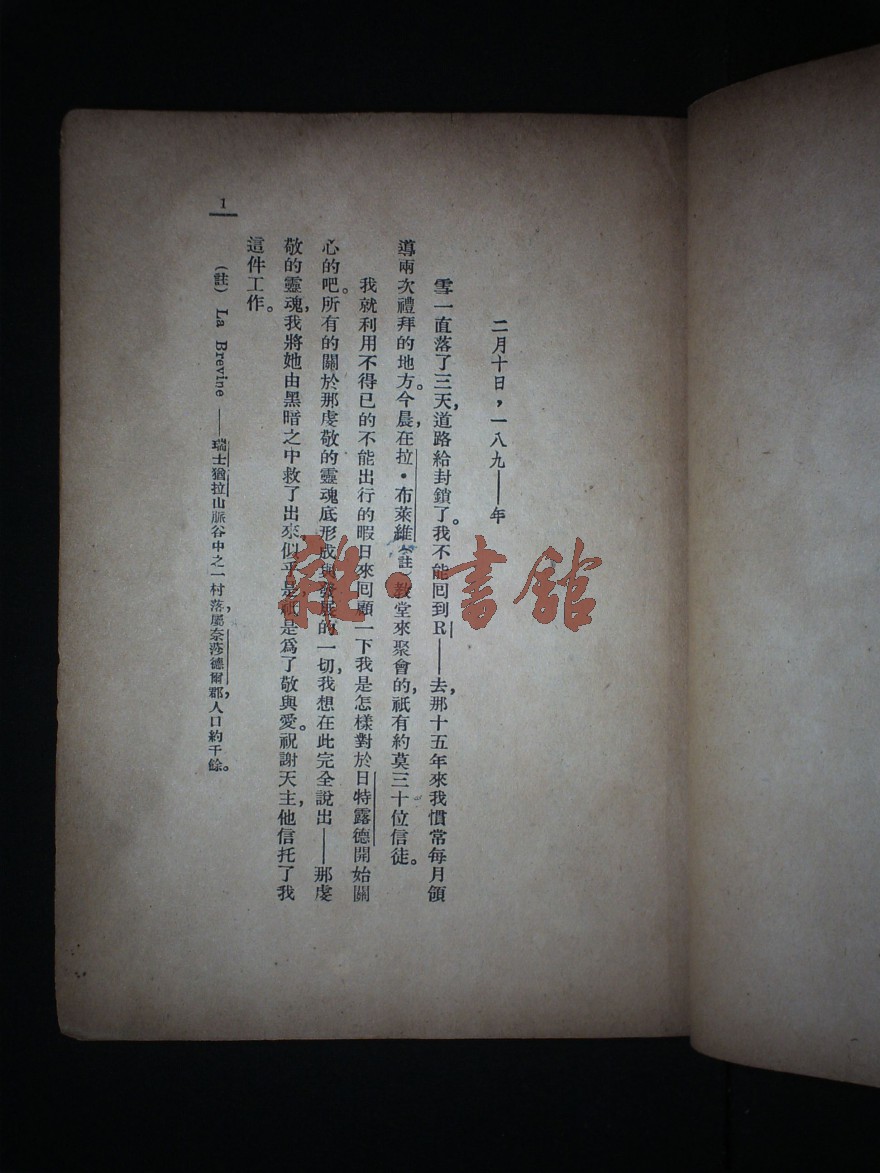 二月十日，一八九——年
雪一直落了三天，道路給封鎖了。我不能回到R——去，那十五年來我慣常每月領
導兩次禮拜的地方。今晨，在拉·布萊維（註）教堂來聚會的，祇有約莫三十位信徒。
我就利用不得已的不能出行的暇日來回顧一下我是怎樣對於日特露德開始關
心的吧。所有的關於那虔敬的靈魂底形成與發展的一切，我想在此完全說出——那虔
敬的靈魂，我將她由黑暗之中救了出來似乎是，祇是爲了敬與愛。祝謝天主，他信托了我
這件工作。
（註） La Brevine ——瑞士猶拉山脈谷中之一村落，屬奈莎德爾郡，人口約千餘。
1
雜·書館